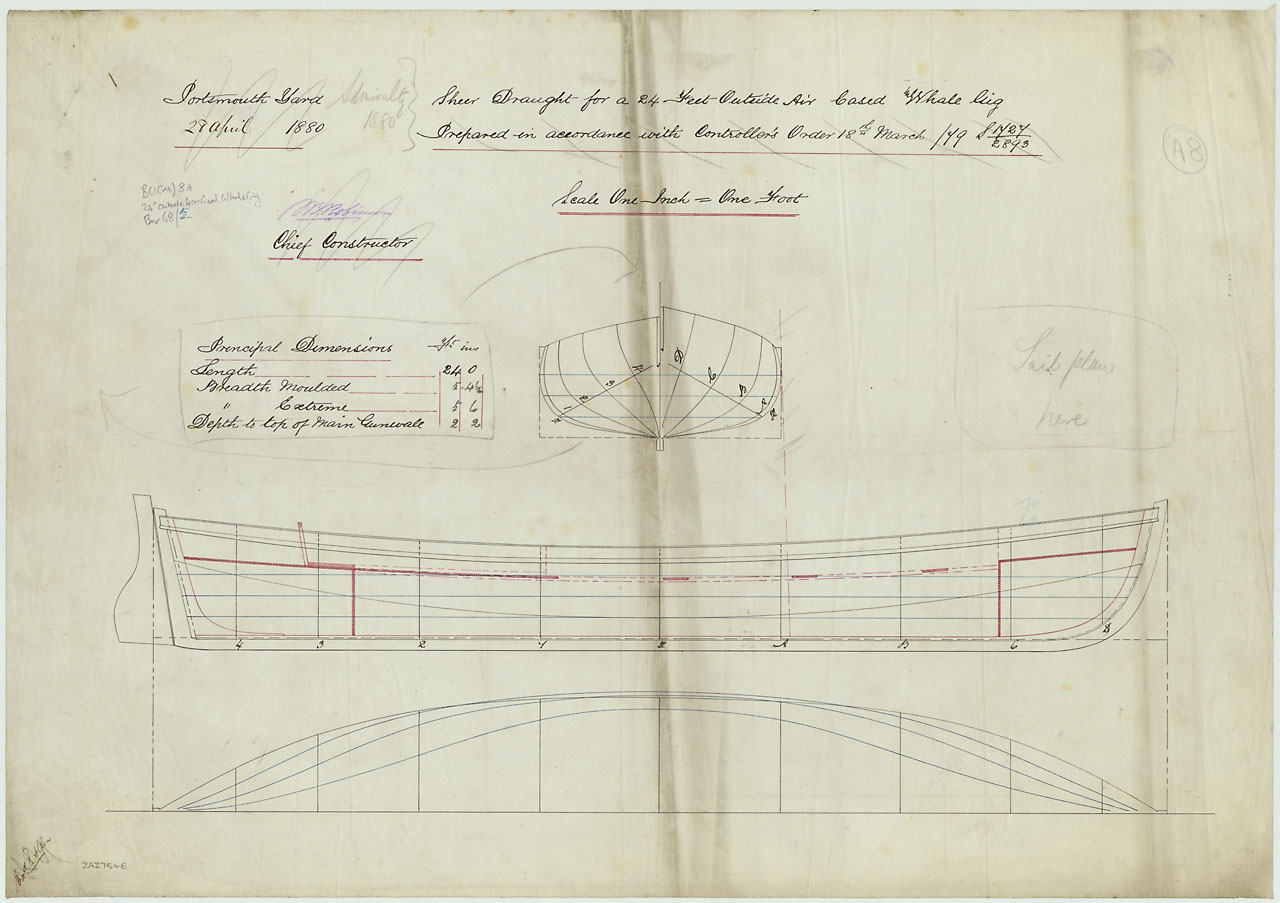 Portsmouth Yard
29 April 1880
Admiralty
1880
Sheer Draught for a 24 Feet Outside Air Cased Whale Gig
Prepared in accordance with Controller's Order 18th March /79 S N27/2893
A8
Scale One Inch = One Foot
BU(M)84
24' outside Air Cased Whale Gig
Box 68/5
Robinson
Chief Constructor
Principal Dimensions fts ins
Length 24 0
Breadth Moulded 5 4½
" Extreme 5 6
Depth to top of Main Gunwale 2 2
4 3 2 1 D C B A
Sail plan
here
4 3 2 1 A B C D
ZAZ7546